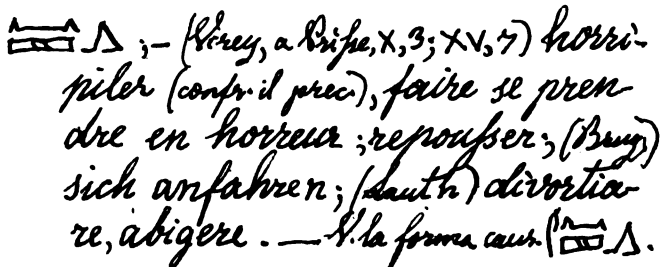 ;— (Virey, a Prisse, X, 3; XV, 7) horri-
piler (confr. il prec.), faire se pren-
dre en horreur ; repousser; (Brug.)
sich anfahren; (Lauth) divortia-
re, abigere. — V. la forma caus. (